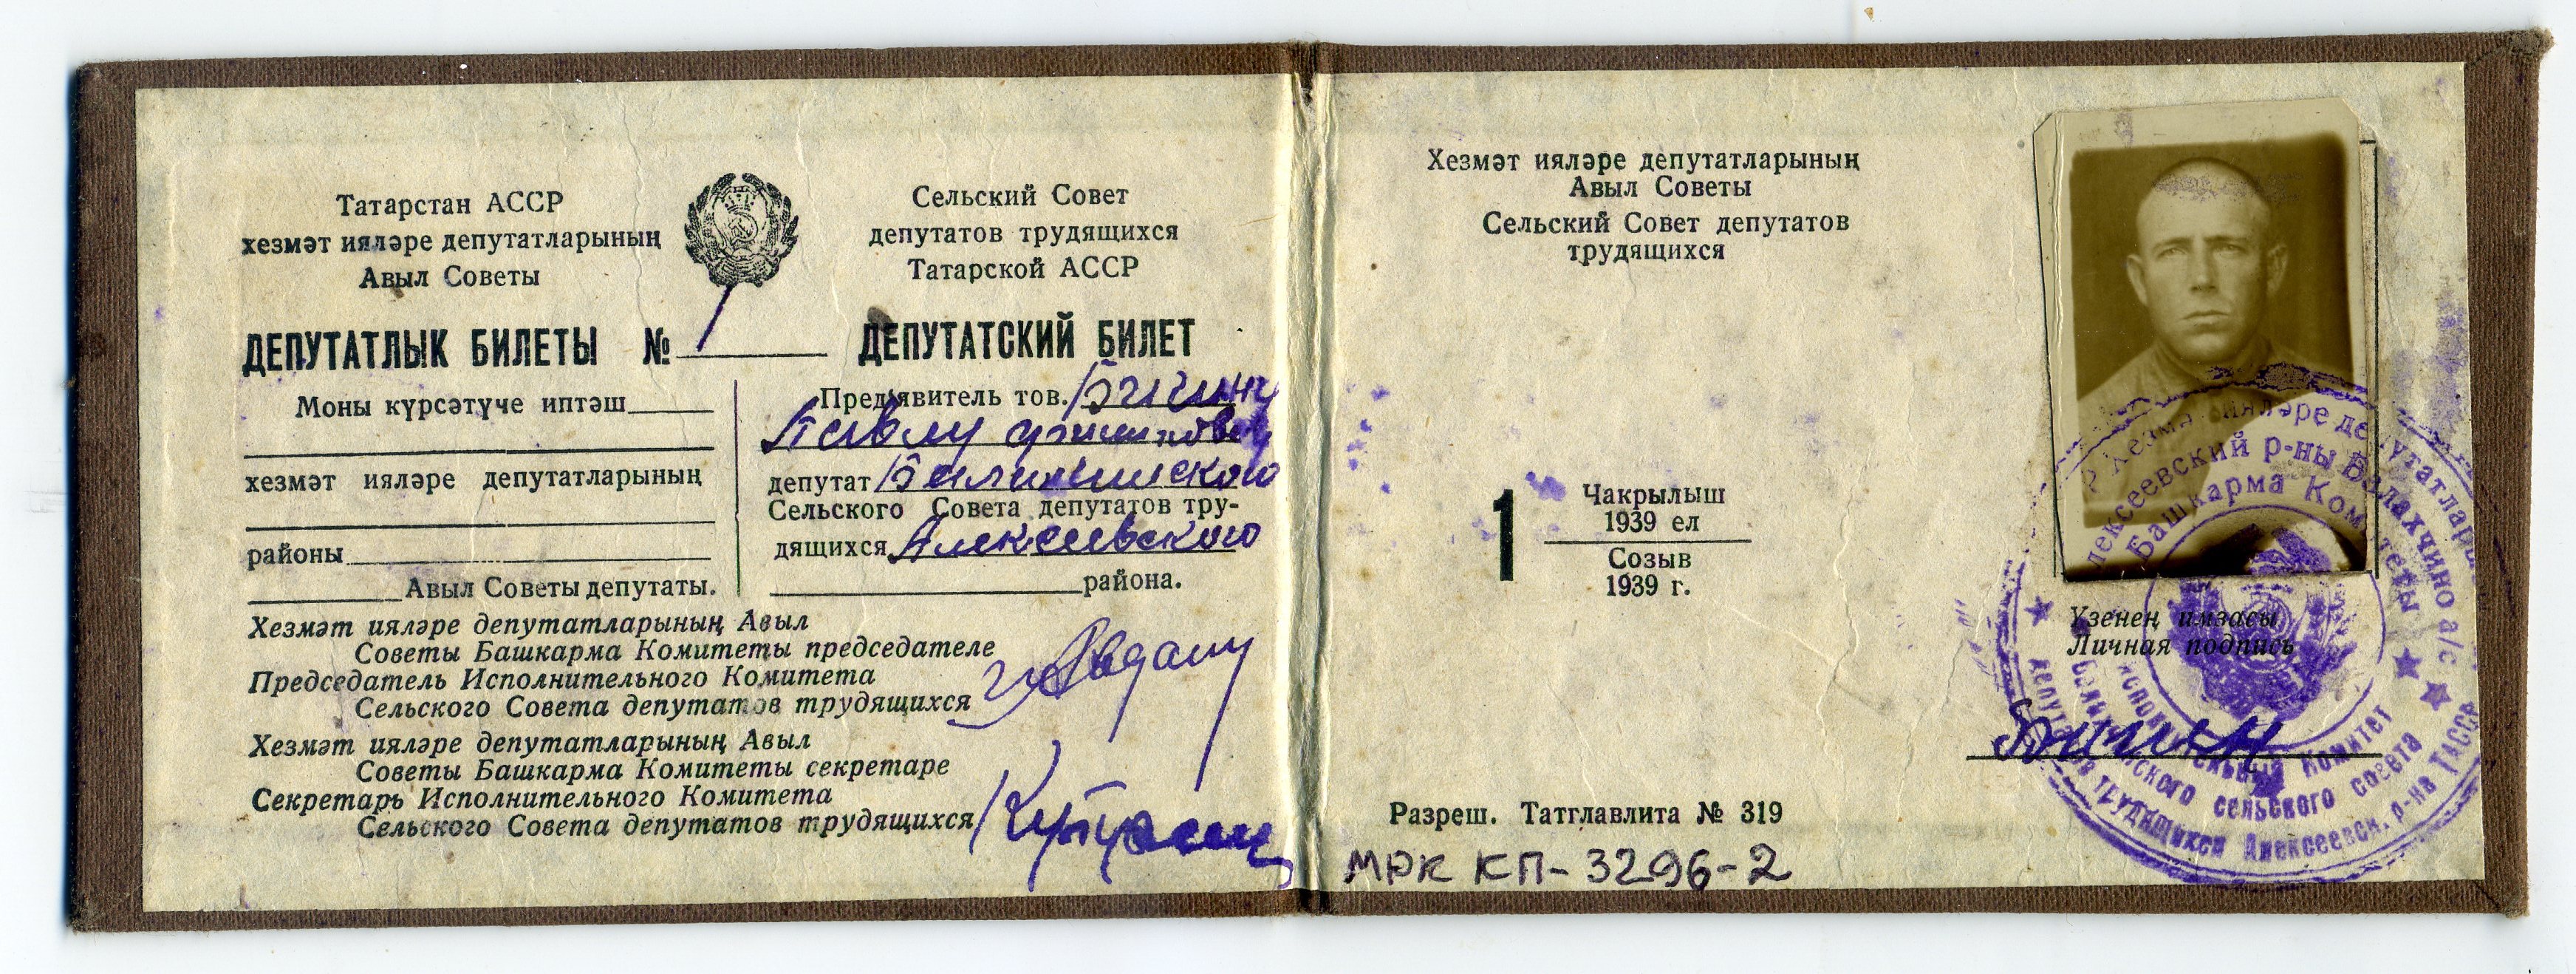 Татарстан АССР
хезмәт ияләре депутатларының
Авыл Советы
Сельский Совет
депутатов трудящихся
Татарской АССР
ДЕПУТАТЛЫК БИЛЕТЫ № 1
ДЕПУТАТСКИЙ БИЛЕТ
Моны күрсәтүче иптәш
хезмәт ияләре депутатларының
районы
Авыл Советы депутаты.
Предъявитель тов.
Павлу
депутат
Сельского Совета депутатов тру-
дящихся Алексеевского
района.
Хезмәт ияләре депутатларының Авыл
Советы Башкарма Комитеты председателе
Председатель Исполнительного Комитета
Сельского Совета депутатов трудящихся
Хезмәт ияләре депутатларының Авыл
Советы Башкарма Комитеты секретаре
Секретарь Исполнительного Комитета
Сельского Совета депутатов трудящихся
Хезмәт ияләре депутатларының
Авыл Советы
Сельский Совет депутатов
трудящихся
1
Чакрылыш
1939 ел
Созыв
1939 г.
Үзенең имзасы
Личная подпись
Разреш. Татглавлита № 319
МРК КП-3296-2
хезмәт ияләре депутатлары
Алексеевский р-ны Балахчино а/с
Башкарма Комитеты
исполнительный комитет
сельского совета
депутатов трудящихся Алексеевск. р-на ТАССР